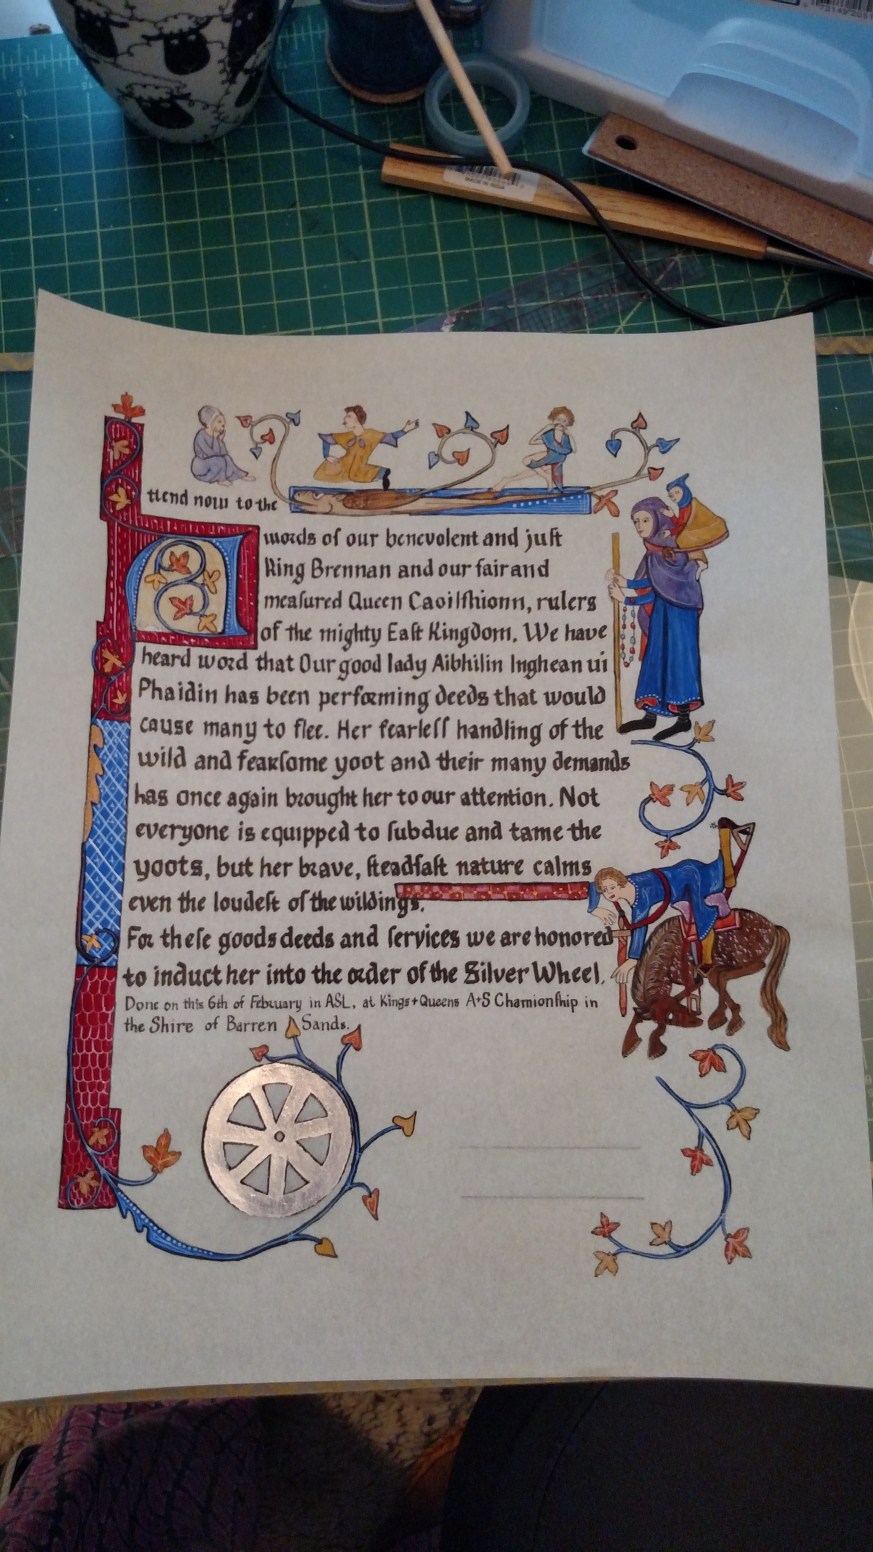 Attend now to the
words of our benevolent and juſt
King Brennan and our fair and
meaſured Queen Caoilfhionn, rulers
of the mighty Eaſt Kingdom. We have
heard word that Our good lady Aibhilin Inghean uí
Phaidin has been performing deeds that would
cause many to flee. Her fearleſſ handling of the
wild and fearſome yoot and their many demands
has once again brought her to our attention. Not
everyone is equipped to ſubdue and tame the
yoots, but her brave, ſteadfaſt nature calms
even the loudeſt of the wildings.
For theſe goods deeds and ſervices we are honored
to induct her into the order of the Silver Wheel.
Done on this 6th of February in ASL, at Kings+Queens A+S Chamionſhip in
the Shire of Barren Sands.